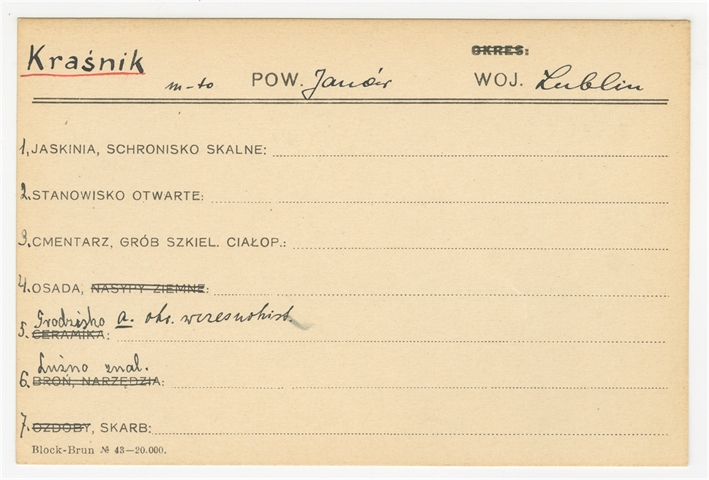 Kraśnik
OKRES:
m-to POW. Janów WOJ. Lublin
1. JASKINIA, SCHRONISKO SKALNE:
2. STANOWISKO OTWARTE:
3. CMENTARZ, GRÓB SZKIEL. CIAŁOP.:
4. OSADA, NASYPY ZIEMNE:
Grodzisko a. okr. wczesnohist.
5. CERAMIKA:
Luźno znal.
6. BROŃ, NARZĘDZIA:
7. OZDOBY, SKARB:
Block-Brun № 43—20.000.